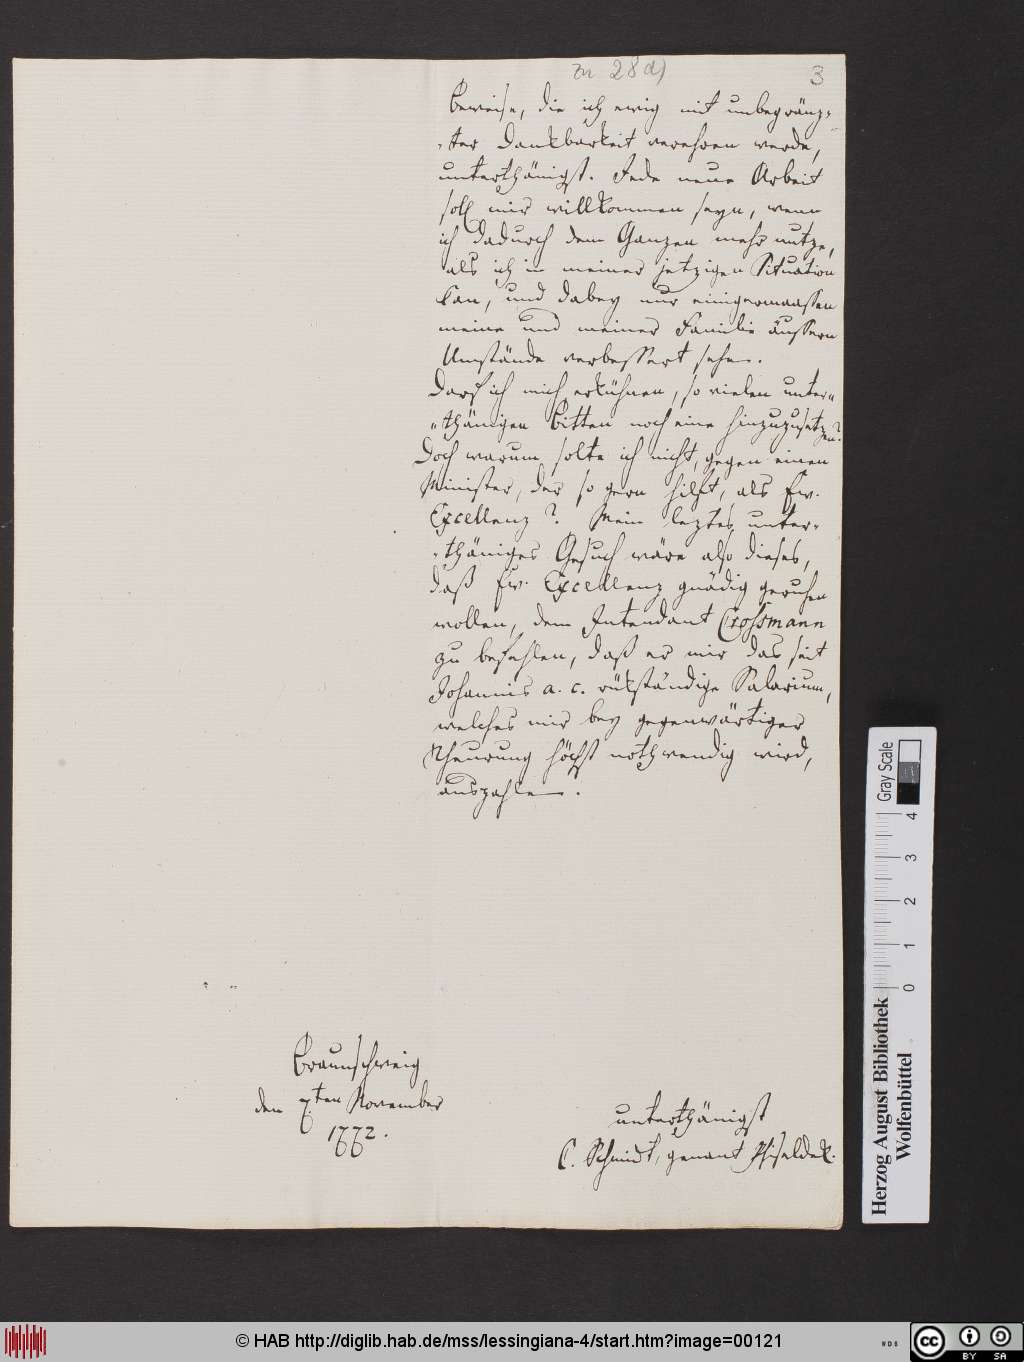 zu 28 d)
3
Beweise, die ich ewig mit unbegränz-
-ter Dankbarkeit verehren werde,
unterthänigst. Jede neue Arbeit
soll mir willkommen seyn, wenn
ich dadurch dem Ganzen mehr nutze,
als ich in meiner jetzigen Situation
kan, und dabey nur einigermaassen
meine und meiner Familie äussern
Umstände verbessert sehe.
Darf ich mich erkühnen, so vielen unter-
-thänigen Bitten noch eine hinzuzusetzen?
Doch warum solte ich nicht, gegen einen
Minister, der so gern hilft, als Ew.
Excellenz? Mein leztes unter-
-thäniges Gesuch wäre also dieses,
daß Ew. Excellenz gnädig geruhen
wollen, dem Intendant Crossmann
zu befehlen, daß er mir das seit
Johannis a. c. rükständige Salarium,
welches mir bey gegenwärtiger
Theurung höchst nothwendig wird,
auszahle.
Braunschweig
den 7ten November
1772.
unterthänigst
C. Schmidt, genant Phiseldek.
Gray Scale
4
3
2
1
0
Herzog August Bibliothek
Wolfenbüttel
© HAB http://diglib.hab.de/mss/lessingiana-4/start.htm?image=00121
WDB
CC BY SA